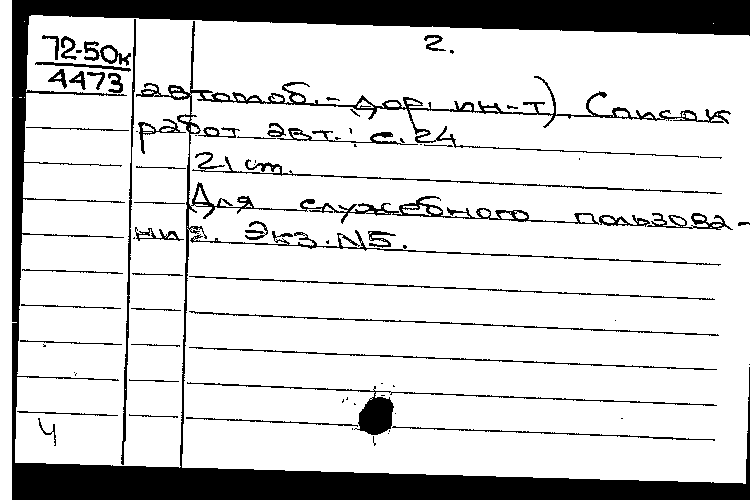 2.
72-50к
4473
автомоб.-дор. ин-т). Список
работ авт.: с. 24
21 см.
Для служебного пользова-
ния. Экз. N5.
4